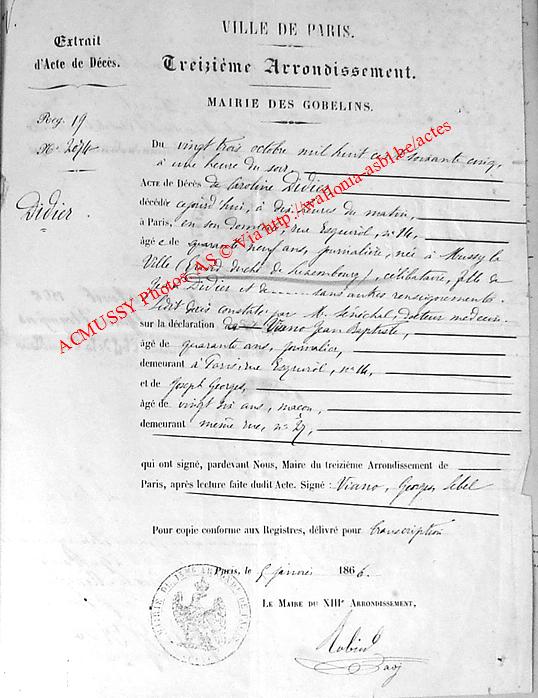 VILLE DE PARIS.
Extrait
d'Acte de Décès.
Treizième Arrondissement.
MAIRIE DES GOBELINS.
Reg. 19
No. 2074
Didier
Du vingt trois octobre mil huit cent soixante cinq,
à une heure du soir,
ACTE DE DÉCÈS de Caroline Didier
décédée cejourd'hui, à dix heures du matin,
à Paris, en son domicile, rue Esquirol, no. 14,
âgée de quarante neuf ans, journalière, née à Mussy la
Ville (Grand duché de Luxembourg), célibataire, fille de
Didier et de sans autres renseignements.
Ledit décès constaté par M. Sénéchal, docteur médecin
sur la déclaration de Viano Jean Baptiste,
âgé de quarante ans, journalier,
demeurant à Paris, rue Esquirol, no. 14,
et de Joseph Georges,
âgé de vingt six ans, maçon,
demeurant même rue, no. 27,
qui ont signé, pardevant Nous, Maire du treizième Arrondissement de
Paris, après lecture faite dudit Acte. Signé : Viano, Georges, Lebel
Pour copie conforme aux Registres, délivré pour transcription
Paris, le 5 janvier 1866.
LE MAIRE DU XIIIe ARRONDISSEMENT,
ACMUSSY Photos AS © Via http://wallonia-asbl.be/actes